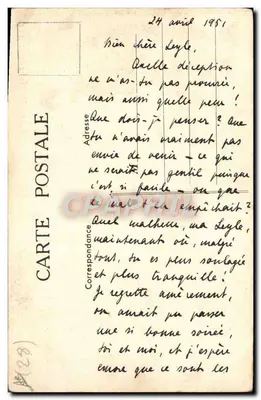 24 avril 1951
Bien chère Leyle,
Quelle déception
ne m'as-tu pas procurée,
mais aussi quelle peur !
Que dois-je penser ? Que
tu n'avais vraiment pas
envie de venir – ce qui
ne serait pas gentil puisque
c'est si facile – ou que
le mal t'en empêchait ?
Quel malheur, ma Leyle,
maintenant où, malgré
tout, tu es plus soulagée
et plus tranquille !
Je regrette amèrement,
on aurait pu passer
une si bonne soirée,
toi et moi, et j'espère
encore que ce sont les
CARTE POSTALE
Adresse
Correspondance